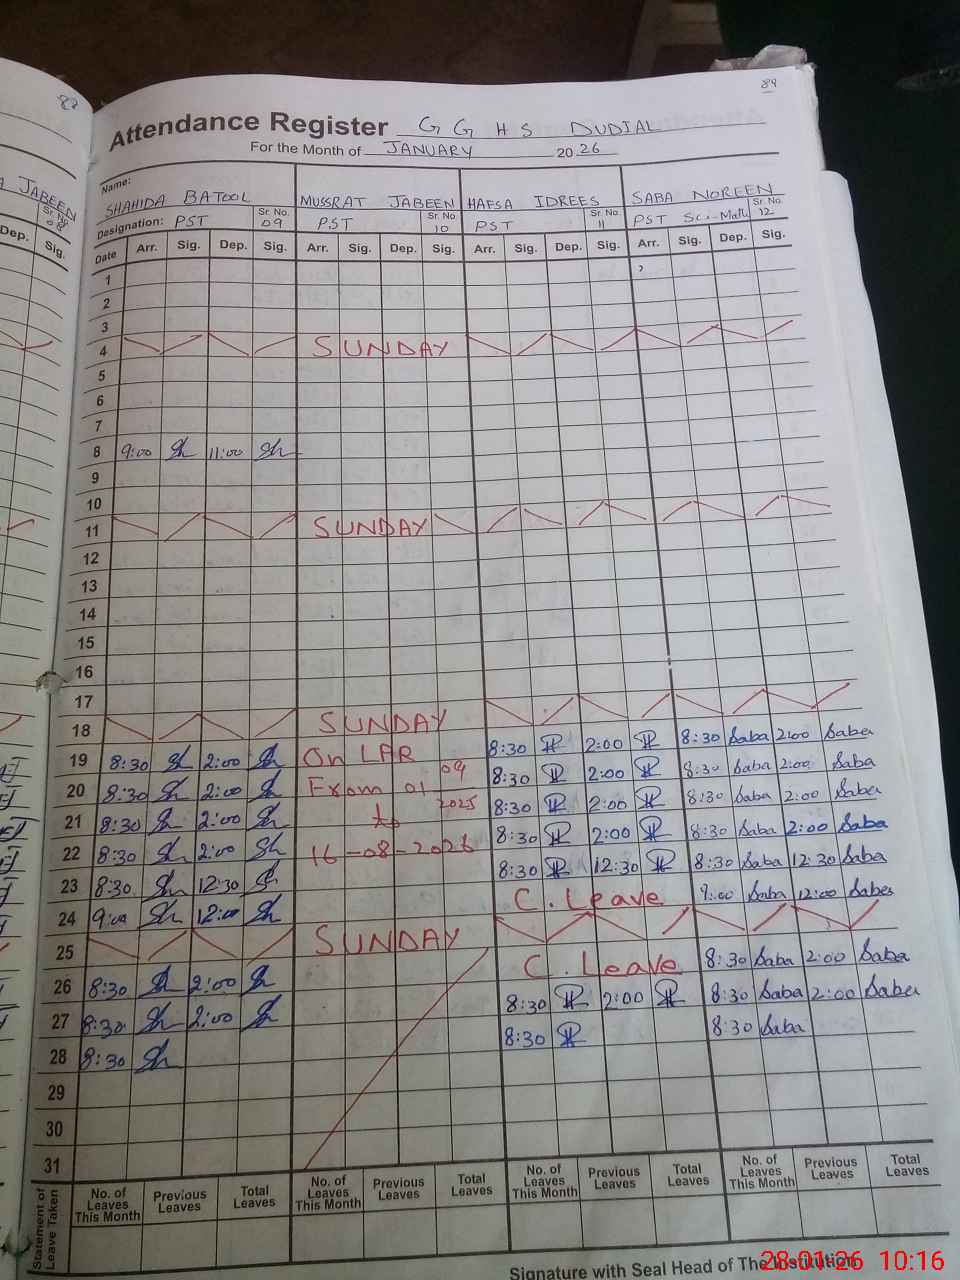 82
84
Attendance Register G G H S DUDIAL
For the Month of JANUARY 2026
Name: SHAHIDA BATOOL MUSSRAT JABEEN HAFSA IDREES SABA NOREEN
JABEEN
Designation: PST Sr. No. 09 PST Sr. No. 10 PST Sr. No. 11 PST Sci-Math Sr. No. 12
Dep. Sig.
Date Arr. Sig. Dep. Sig. Arr. Sig. Dep. Sig. Arr. Sig. Dep. Sig. Arr. Sig. Dep. Sig.
1
2
3
4 SUNDAY
5
6
7
8 9:00 Sh 11:00 Sh
9
10
11 SUNDAY
12
13
14
15
16
17
18 SUNDAY
19 8:30 Sh 2:00 Sh On LPR 8:30 2:00 8:30 Saba 2:00 Saba
20 8:30 Sh 2:00 Sh From 01 09 8:30 2:00 8:30 Saba 2:00 Saba
21 8:30 Sh 2:00 Sh to 2025 8:30 2:00 8:30 Saba 2:00 Saba
22 8:30 Sh 2:00 Sh 16-08-2026 8:30 2:00 8:30 Saba 2:00 Saba
23 8:30 Sh 12:30 Sh 8:30 12:30 8:30 Saba 12:30 Saba
24 9:00 Sh 12:00 Sh C. Leave 9:00 Saba 12:00 Saba
25 SUNDAY
26 8:30 Sh 2:00 Sh C. Leave 8:30 Saba 2:00 Saba
27 8:30 Sh 2:00 Sh 8:30 2:00 8:30 Saba 2:00 Saba
28 8:30 Sh 8:30 8:30 Saba
29
30
31
Statement of Leave Taken No. of Leaves This Month Previous Leaves Total Leaves No. of Leaves This Month Previous Leaves Total Leaves No. of Leaves This Month Previous Leaves Total Leaves No. of Leaves This Month Previous Leaves Total Leaves
Signature with Seal Head of The Institution
28-01-26 10:16